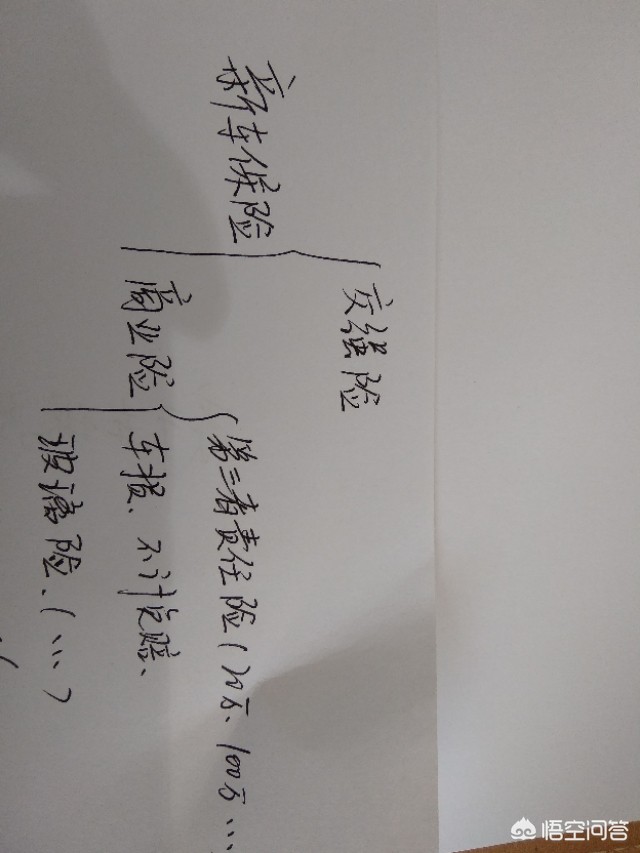 新车保险
交强险
商业险
第三者责任险(20万、100万…
车损、不计免赔、
玻璃险、(…)
悟空问答